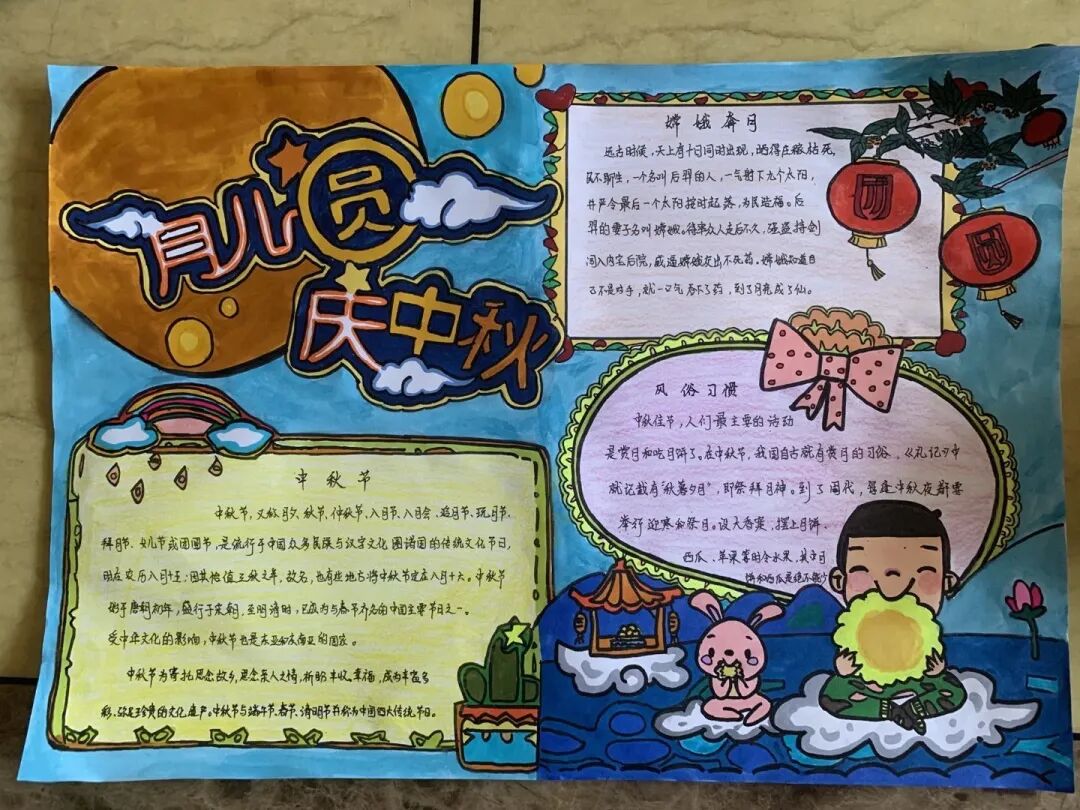 月儿圆
庆中秋
中秋节
中秋节,又称月夕、秋节、仲秋节、八月节、八月会、追月节、玩月节、
拜月节、女儿节或团圆节,是流行于中国众多民族与汉字文化圈诸国的传统文化节日,
时在农历八月十五;因其恰值三秋之半,故名,也有些地方将中秋节定在八月十六。中秋节
始于唐朝初年,盛行于宋朝,至明清时,已成为与春节齐名的中国主要节日之一。
受中华文化的影响,中秋节也是东亚和东南亚的国家。
中秋节为寄托思念故乡,思念亲人之情,祈盼丰收、幸福,成为丰富多
彩、弥足珍贵的文化遗产。中秋节与端午节、春节、清明节并称为中国四大传统节日。
嫦娥奔月
远古时候,天上有十日同时出现,晒得庄稼枯死,
民不聊生,一个名叫后羿的人,一气射下九个太阳,
并严令最后一个太阳按时起落,为民造福。后
羿的妻子名叫嫦娥。待众人走后不久,蓬蒙持剑
闯入内宅后院,威逼嫦娥交出不死药。嫦娥知道自
己不是对手,就一口气吞下了药,到了月亮成了仙。
团
圆
风俗习惯
中秋佳节,人们最主要的活动
是赏月和吃月饼了。在中秋节,我国自古就有赏月的习俗,《礼记》中
就记载有"秋暮夕月",即祭拜月神。到了周代,每逢中秋夜都要
举行迎寒和祭月。设大香案,摆上月饼、
西瓜、苹果等时令水果,其中月
饼和西瓜是绝不能少